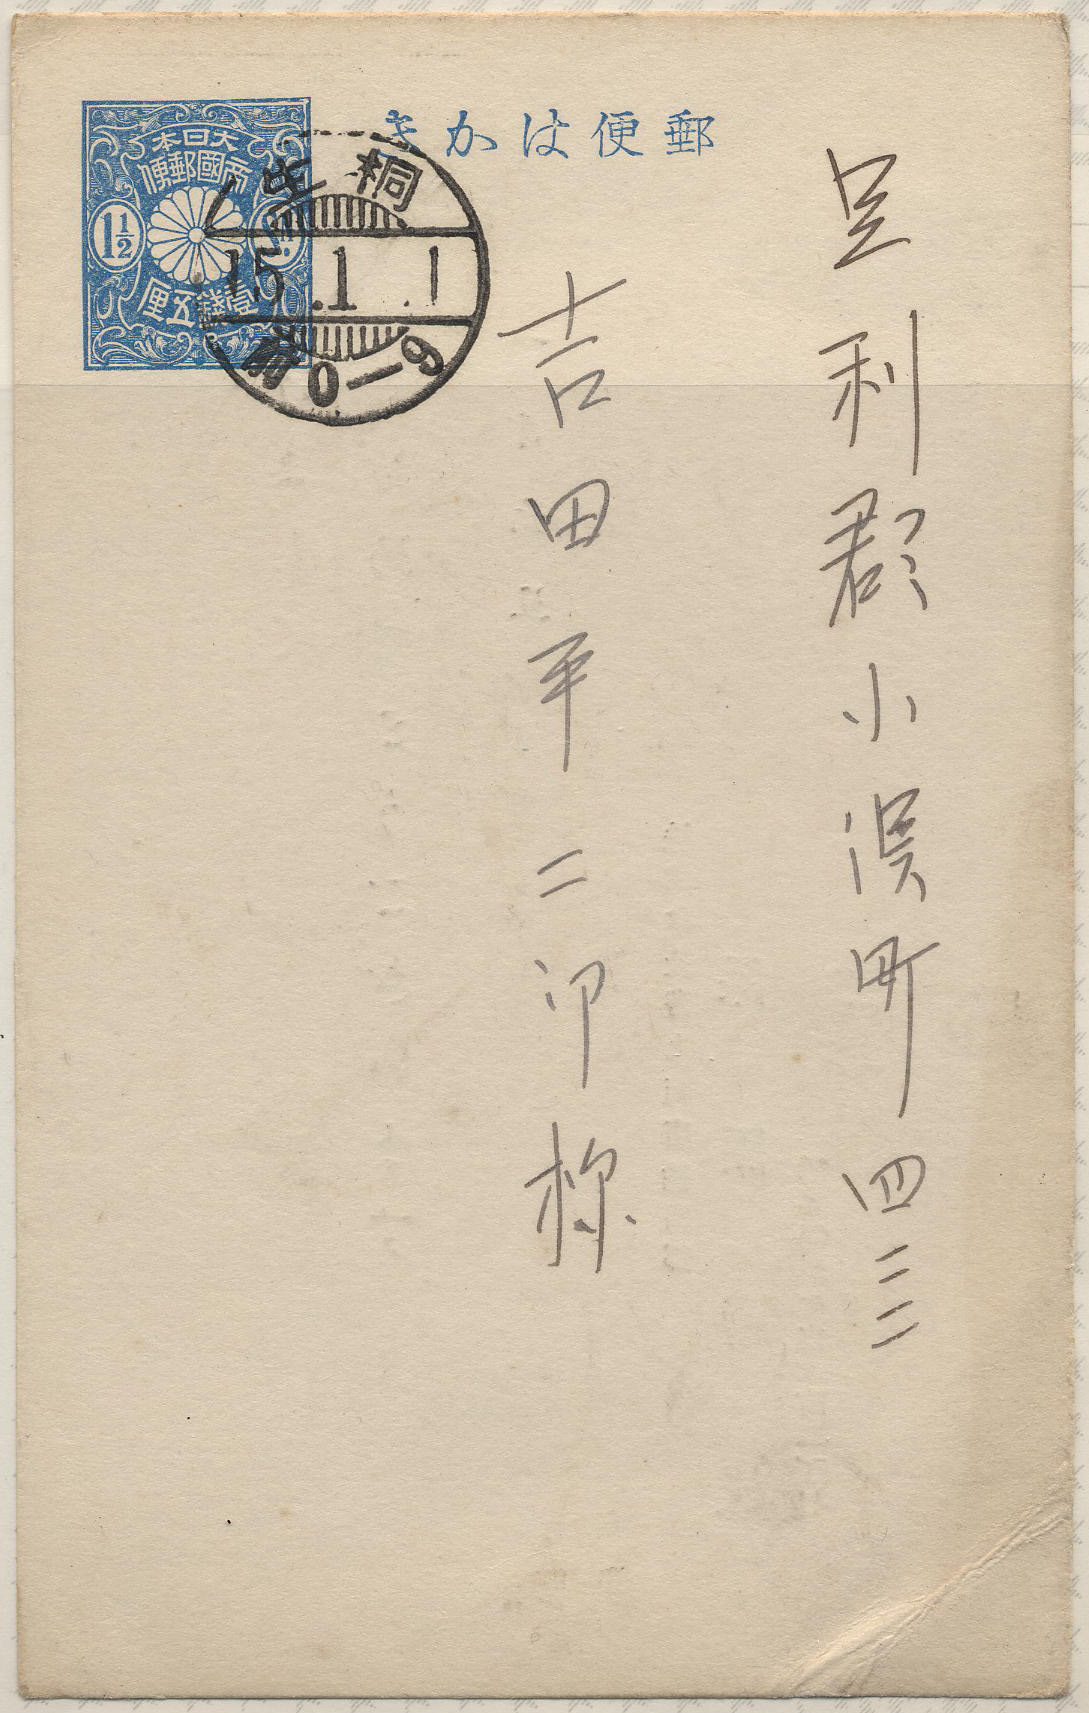 郵便はかき
大日本
帝國郵便
1½
壹錢五厘
桐生
15.1.1
前0-9
足利郡小俣町四二二
吉田平二郎様